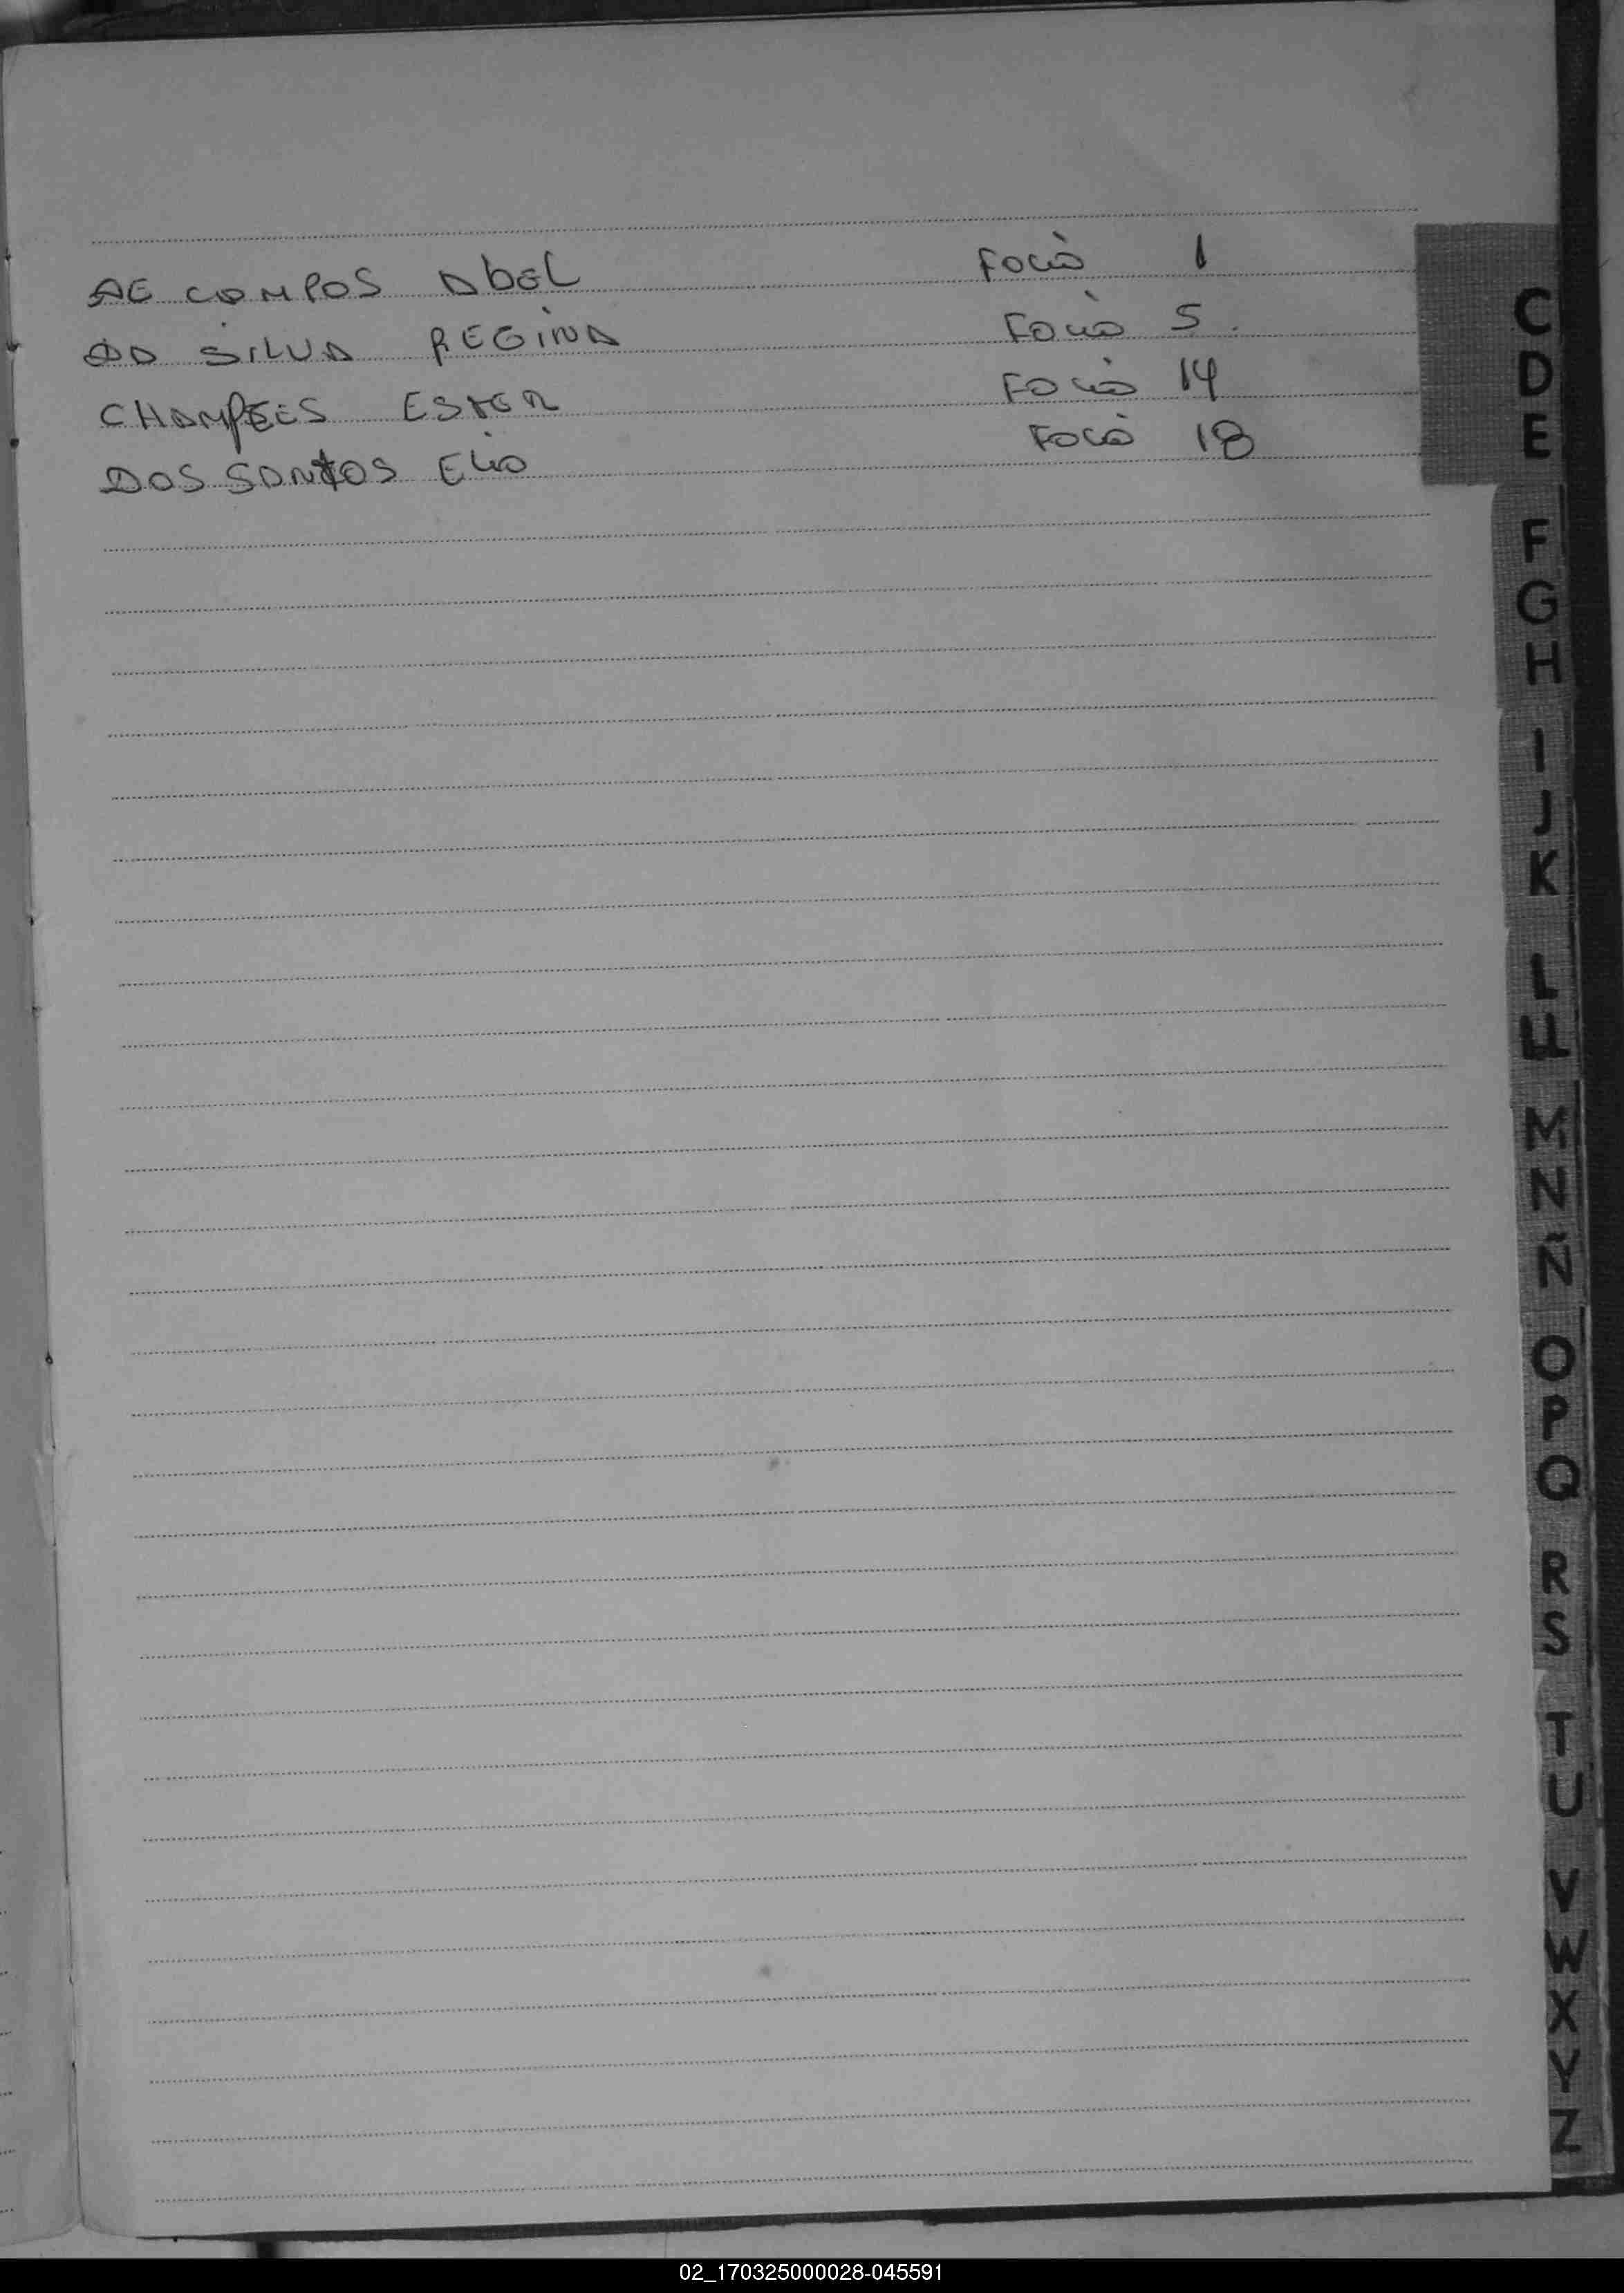 DE CAMPOS AbEL Folio 1
DA SiLVA REGiNA Folio 5.
ESTER Folio 14
DOS SANTOS Elio Folio 18
C
D
E
F
G
H
I
J
K
L
LL
M
N
Ñ
O
P
Q
R
S
T
U
V
W
X
Y
Z
02_170325000028-045591